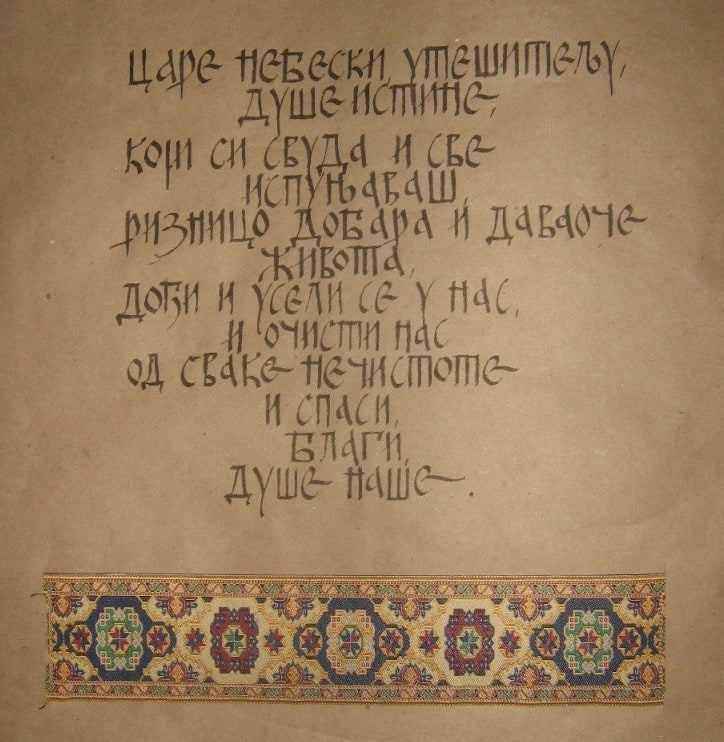 Царе небески, утешитељу,
душе истине,
који си свуда и све
испуњаваш,
ризницо добара и даваоче
живота,
дођи и усели се у нас,
и очисти нас
од сваке нечистоте
и спаси,
благи,
душе наше.